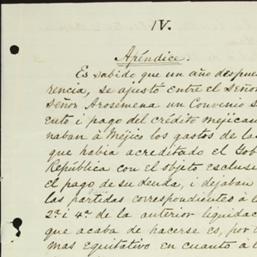 IV.
Apéndice.
Es sabido que un año despues
rencia, se ajusto entre el Señor
Señor Arosemena un Convenio s
cuto i pago del crédito mejican
naban à Méjico los gastos de la
que había acreditado el Gob
República con el objeto esclusi
el pago de su deuda, i dejaban
las partidas correspondientes à l
2ª i 4ª de la anterior liquidac
que acaba de hacerse es, por
mas equitativo en cuanto à